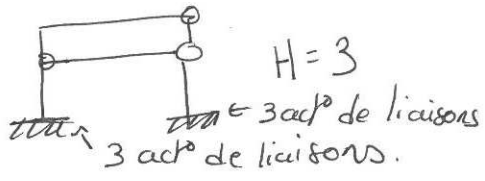 H = 3
3 act° de liaisons
3 act° de liaisons.